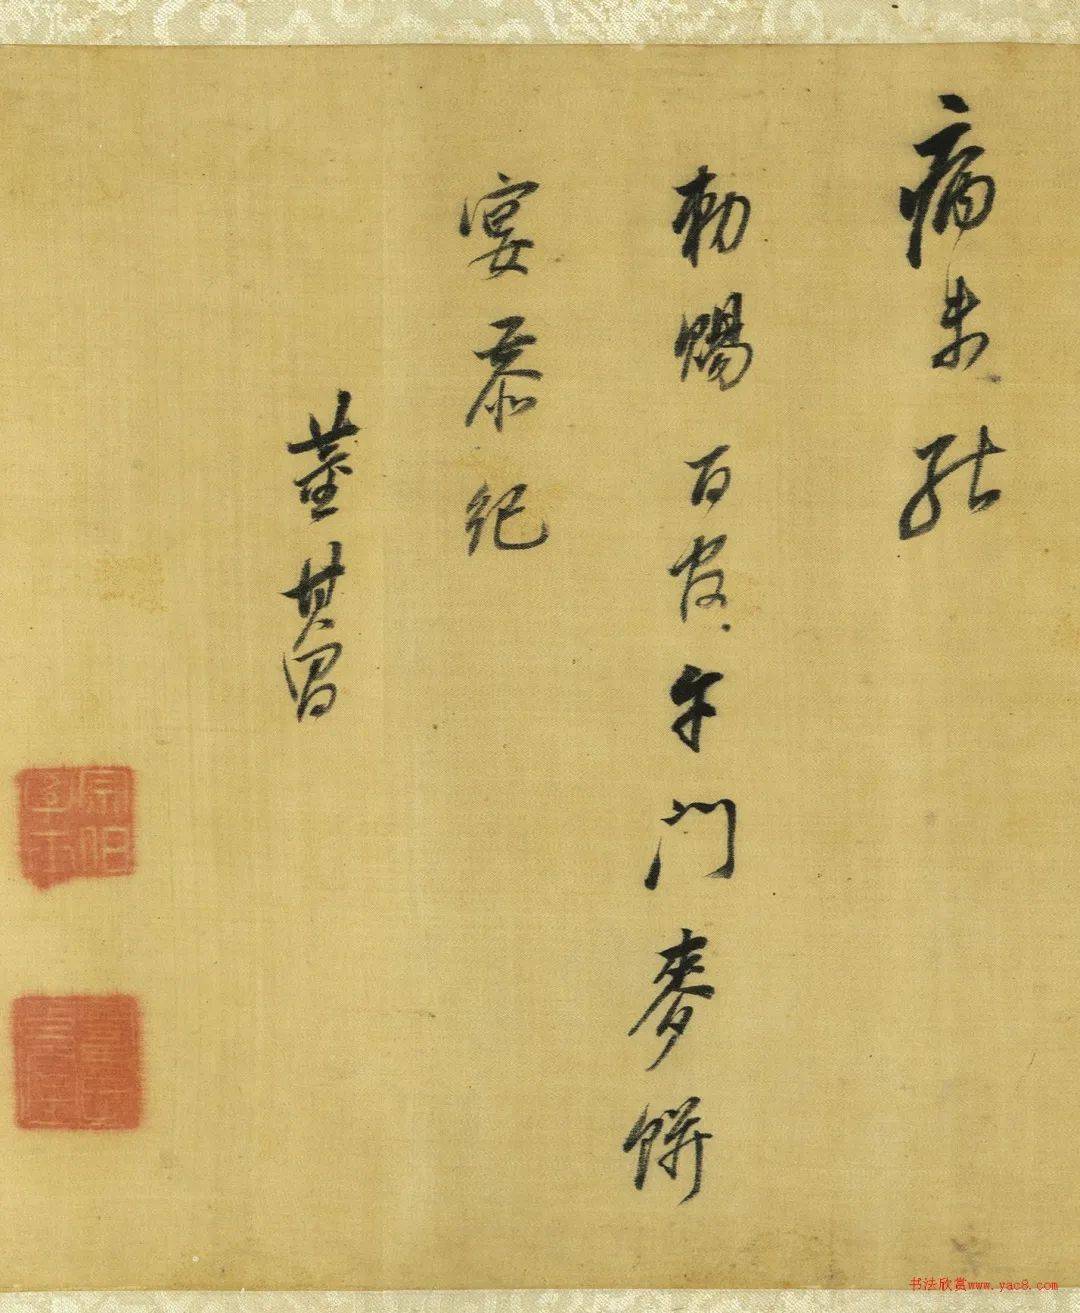 病未能
勅賜百官午門麥餅
宴恭紀
董其昌
宗伯學士
书法欣赏www.yac8.com